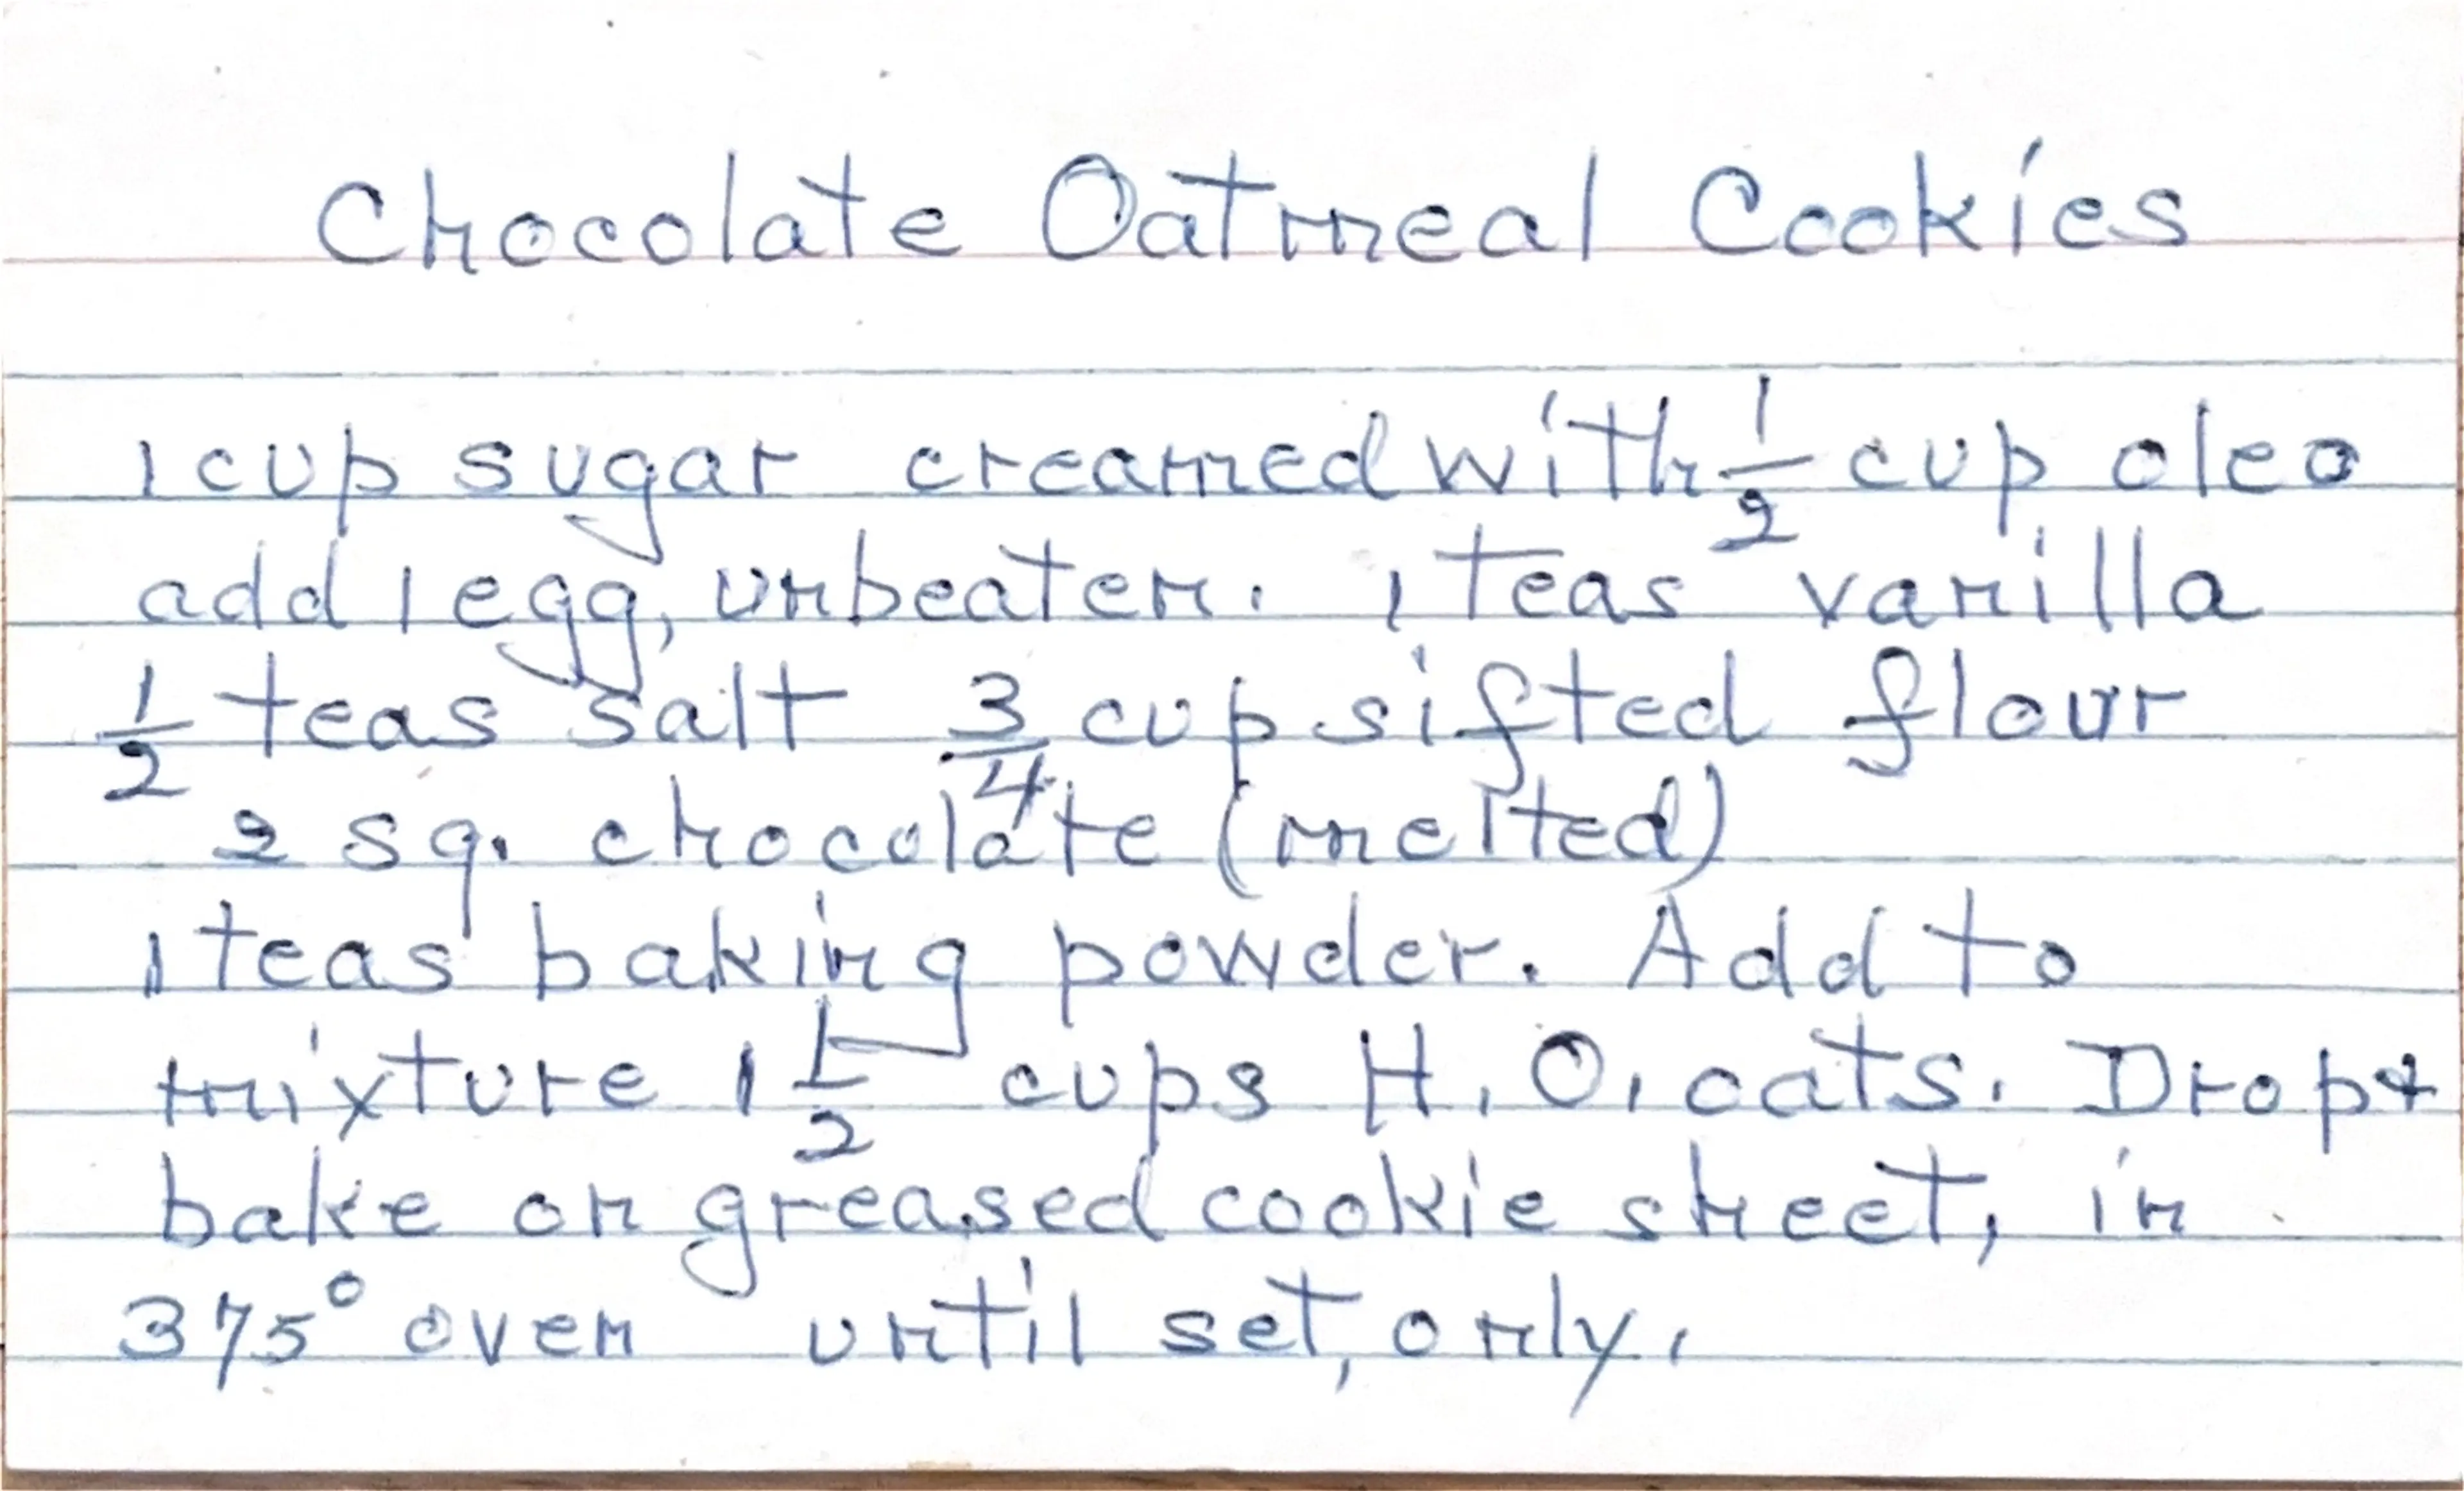 Chocolate Oatmeal Cookies
1 cup sugar creamed with 1/2 cup oleo
add 1 egg, unbeaten. 1 teas vanilla
1/2 teas salt 3/4 cup sifted flour
2 sq. chocolate (melted)
1 teas baking powder. Add to
mixture 1 1/2 cups H.O. oats. Drop &
bake on greased cookie sheet, in
375° oven until set, only.